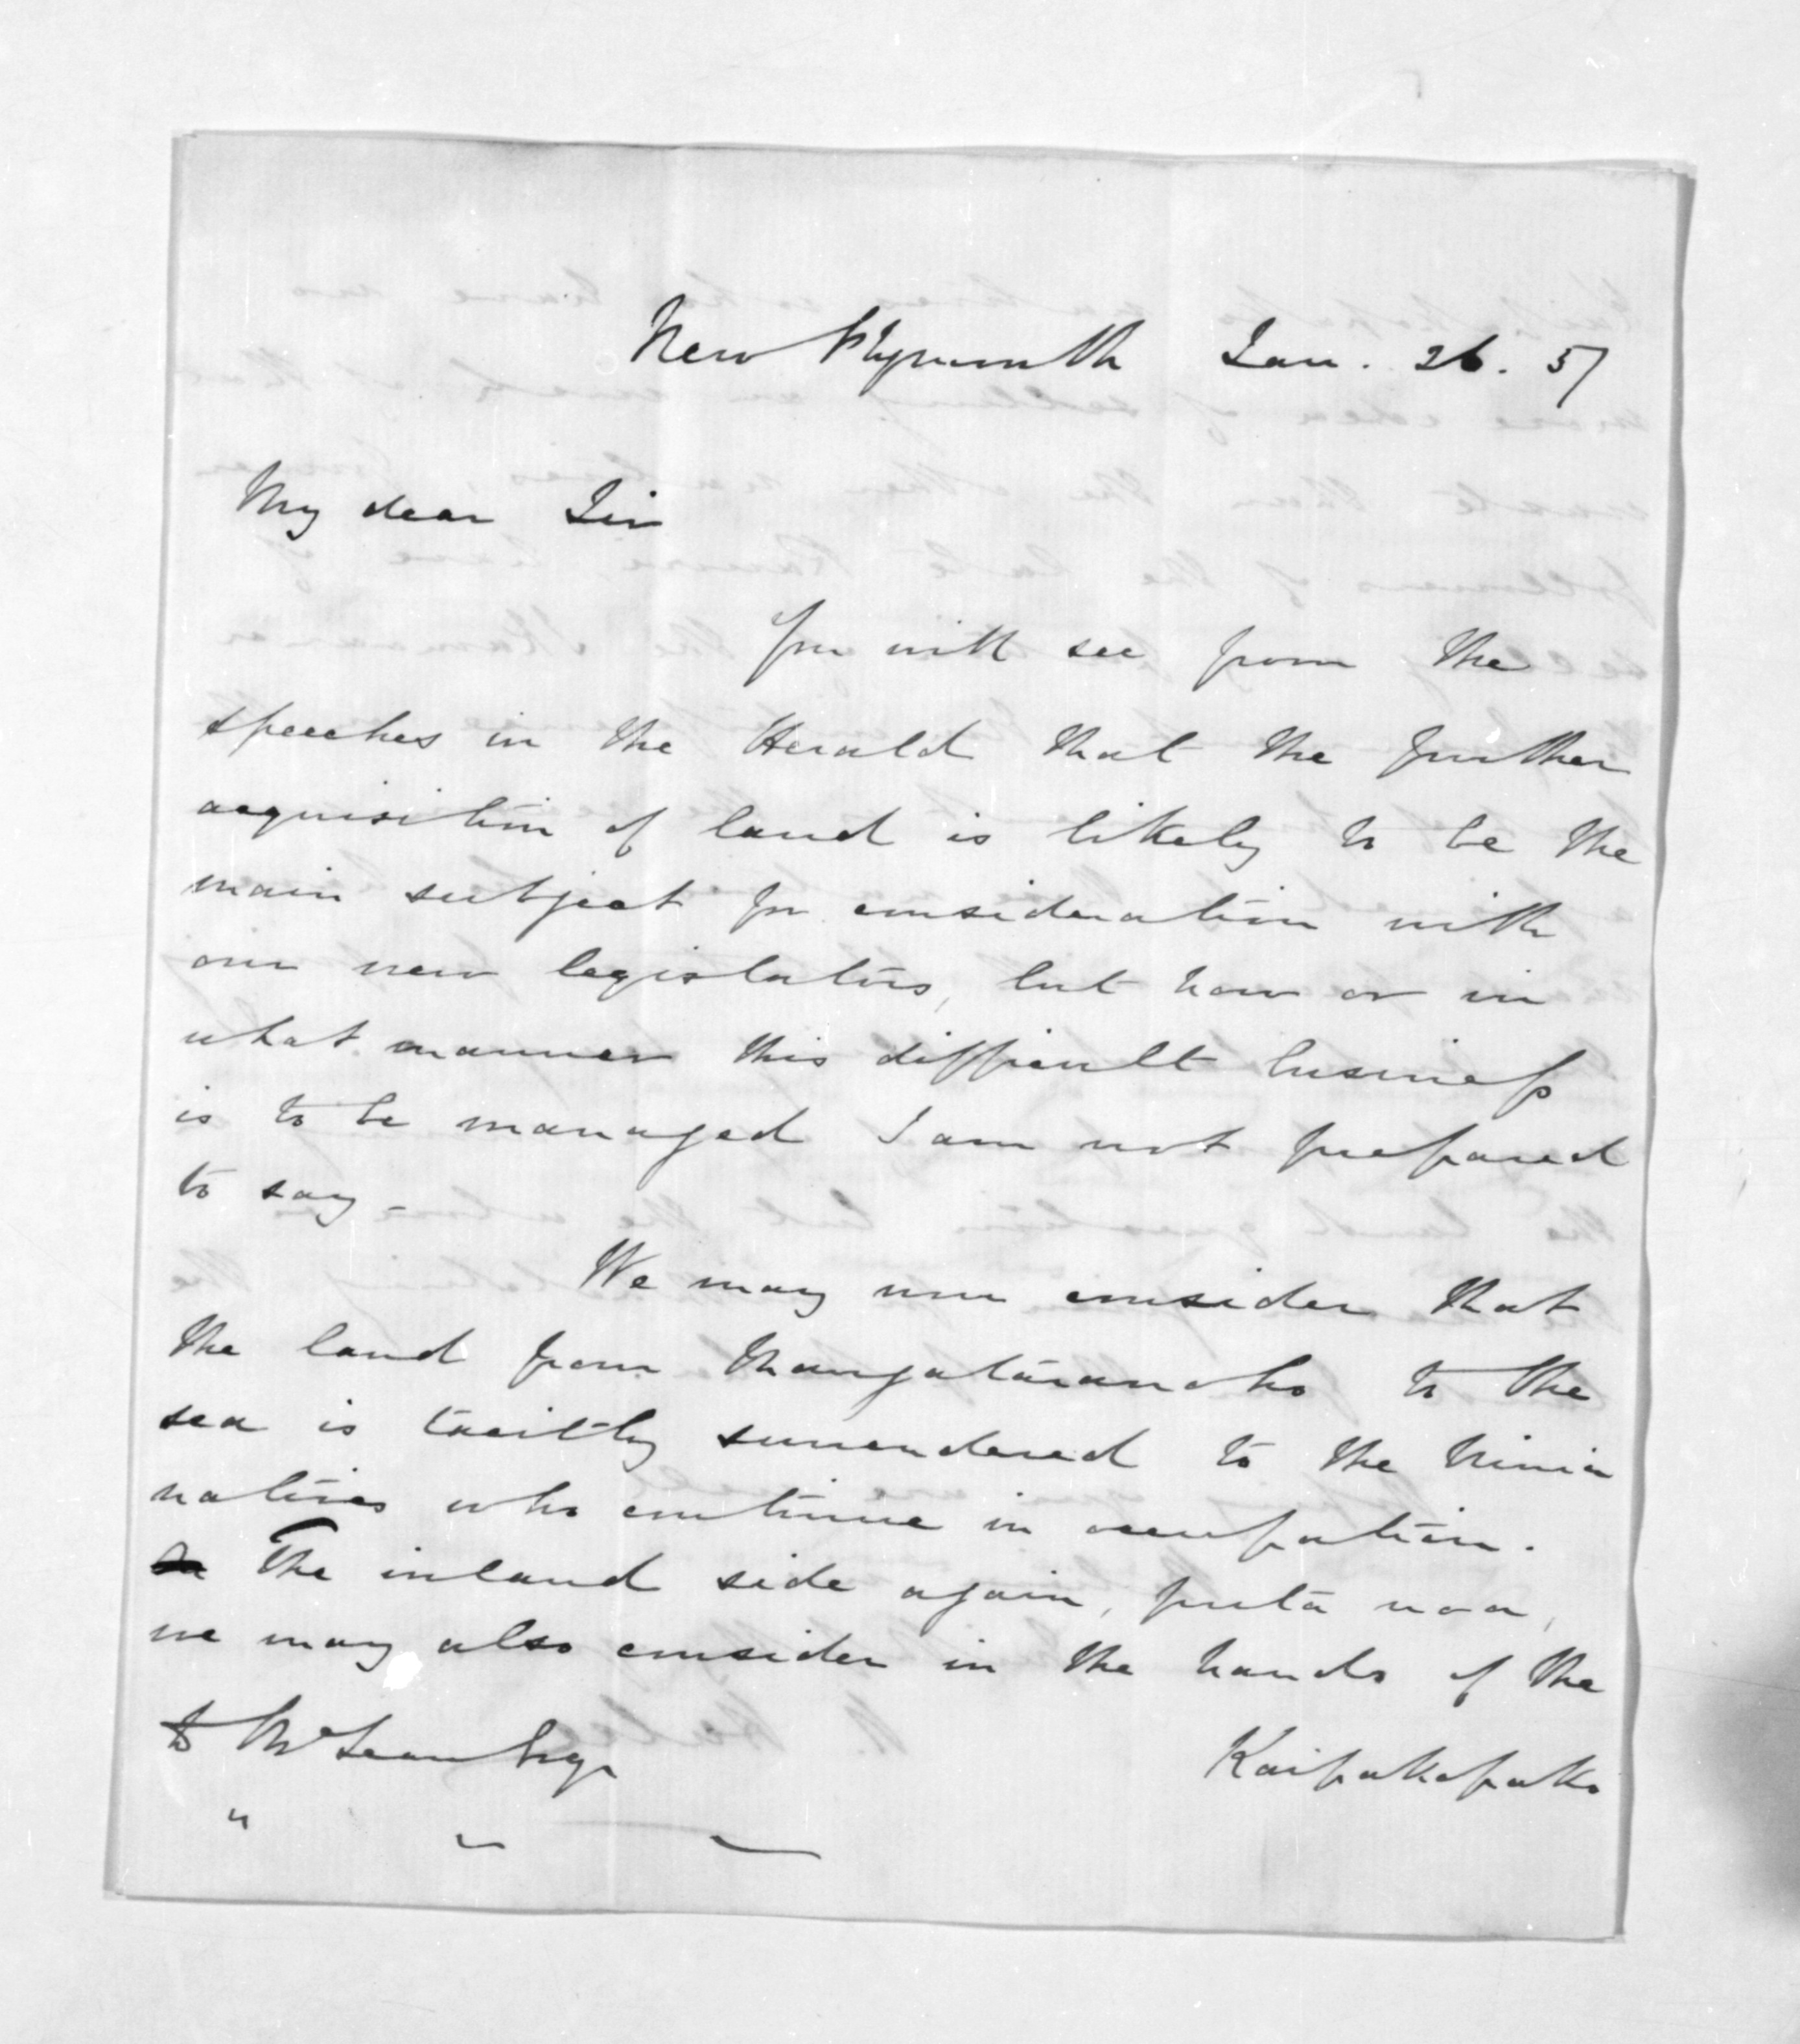 New Plymouth Jan. 26. 57
My dear Sir
You will see from the
speeches in the Herald that the further
acquisition of land is likely to be the
main subject for consideration with
our new legislators, but how or in
what manner this difficult business
is to be managed I am not prepared
to say -
We may now consider that
the land from Mangataraucho to the
sea is tacitly surrendered to the Ninia
natives who continue in occupation.
The inland side again, puta noa,
we may also consider in the hands of the
Kaipakopako
D McLean Esqr
" " —